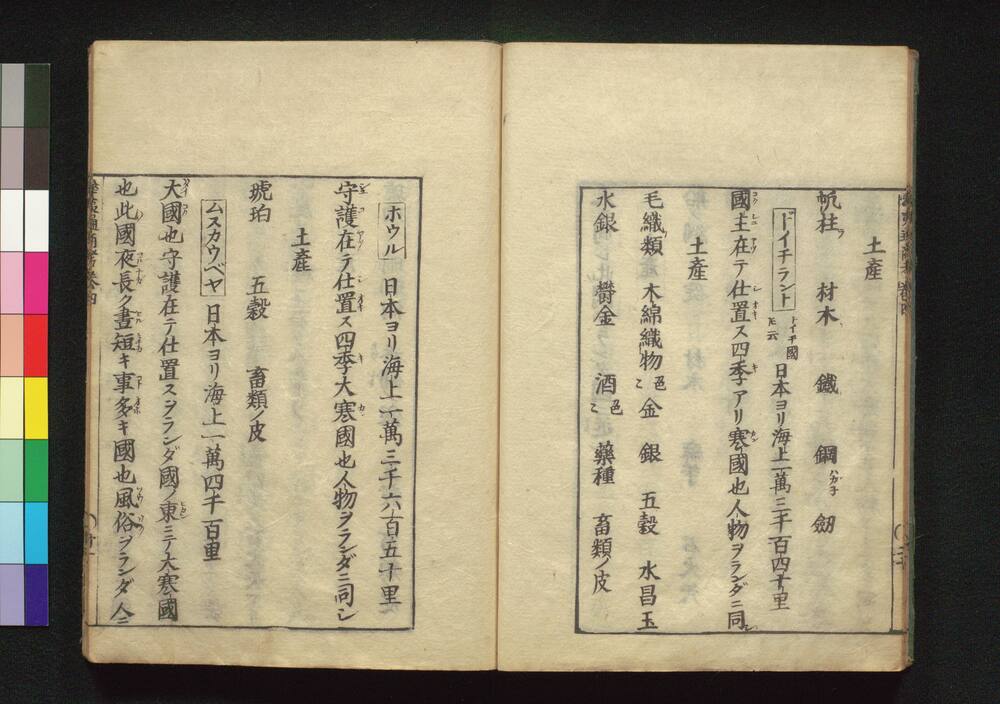 土産
帆柱　材木　鐵　鋼　劔
ドイチラント　ドイチ國トモ云　日本ヨリ海上一萬三千百四十里
國主在テ仕置ス四季アリ寒國也人物ヲランダニ同シ
土産
毛織類　木綿織物色〻　金　銀　五穀　水昌玉
水銀　欝金　酒色〻　藥種　畜類ノ皮
ホウル　日本ヨリ海上一萬三千六百五十里
守護在テ仕置ス四季大寒國也人物ヲランダニ同シ
土產
琥珀　五穀　畜類ノ皮
ムスカウベヤ　日本ヨリ海上一萬四千百里
大國也守護在テ仕置スヲランダ國ノ東ニテ大寒國
也此國夜長ク晝短キ事多キ國也風俗ヲランダ人ニ